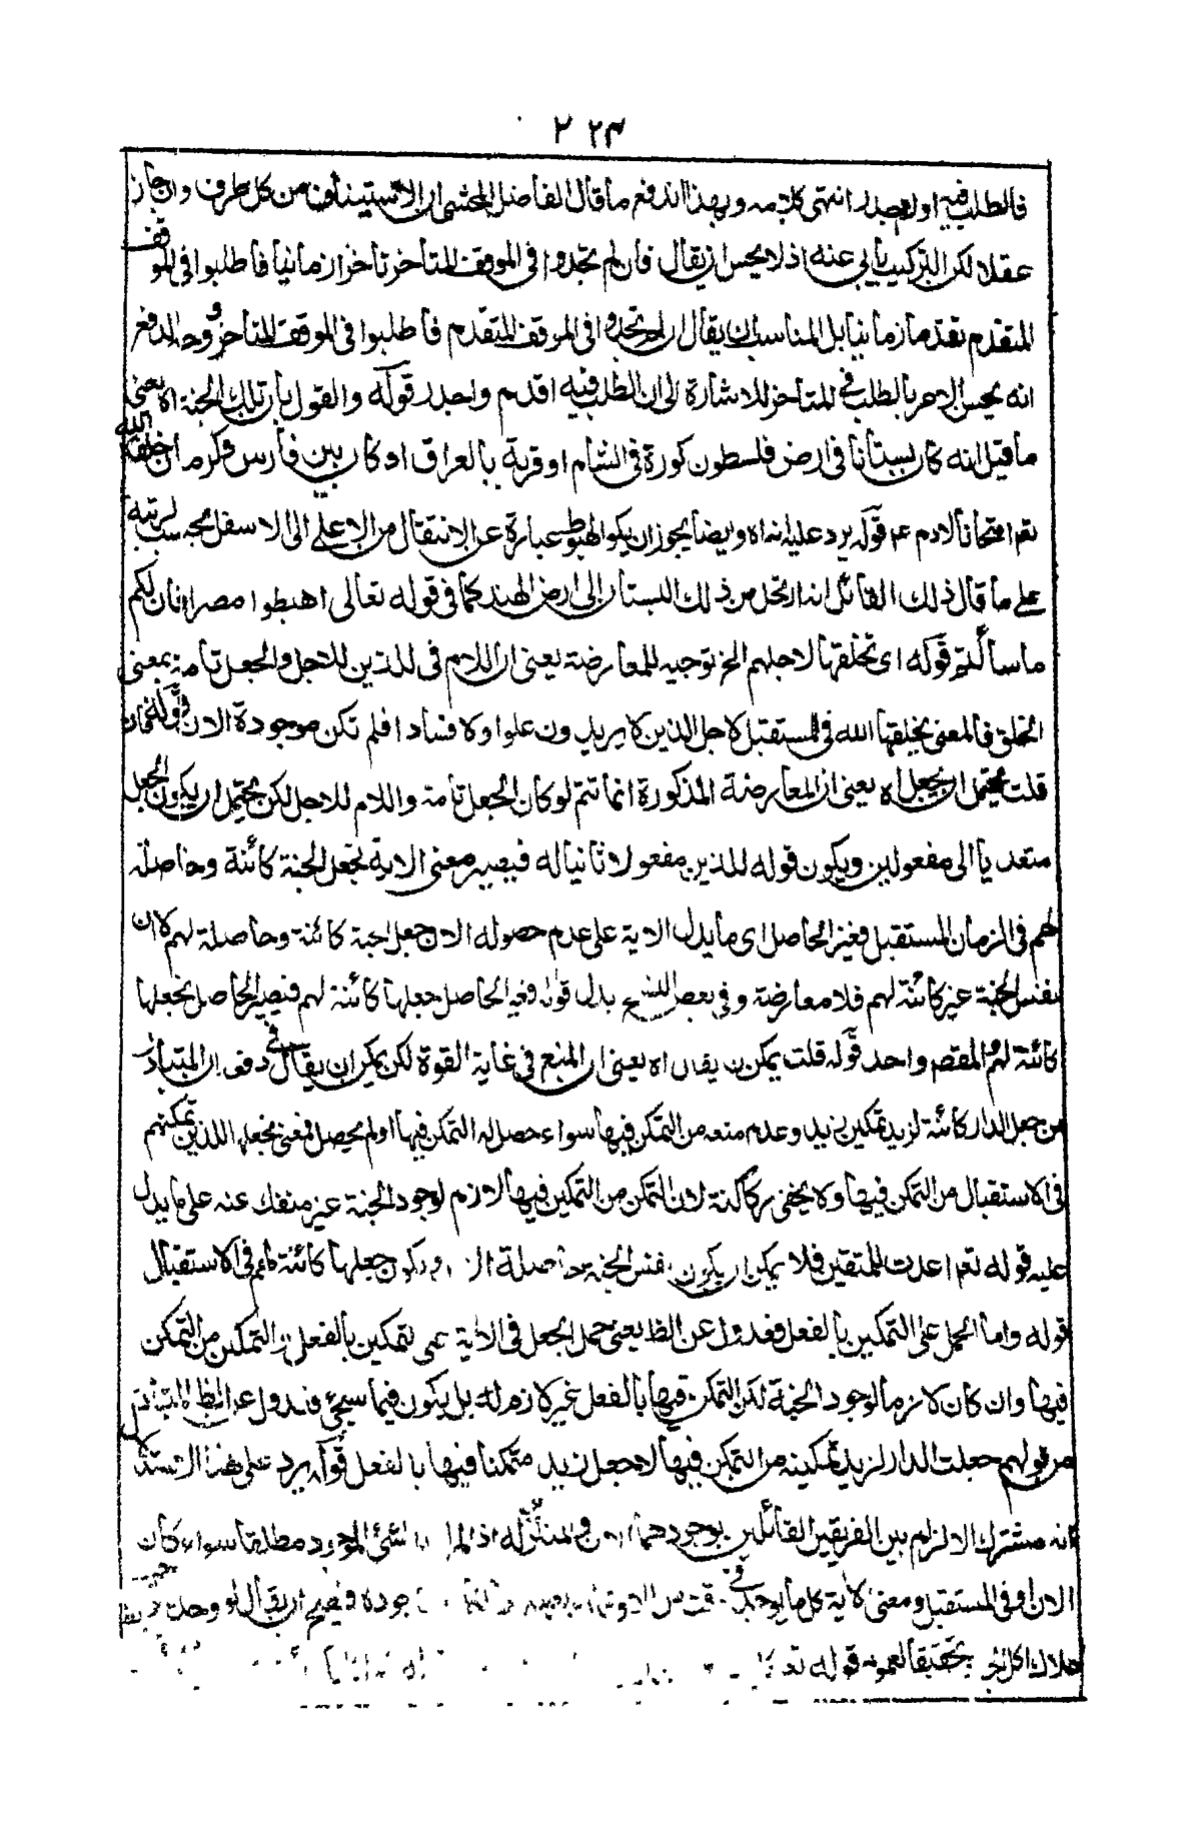 ٢٢٣
فالطلب فيه اولى واجدر انتهى كلامه وبهذا اندفع ما قال الفاضل المحشى ان الاستيناف من كل طرف وان جاز
عقلا لكن التركيب يأبى عنه اذ لا يحسن ان يقال فان لم تجدوا فى الموقف المتأخر تأخرا زمانيا فاطلبوا فى الموقف
المتقدم تقدما زمانيا بل المناسب ان يقال ان لم تجدوا فى الموقف المتقدم فاطلبوا فى الموقف المتأخر وجه الدفع
انه يحسن الامر بالطلب فى المتأخر للاشارة الى ان الطلب فيه اقدم واجدر قوله والقول بان تلك الجنة اه يعنى
ما قيل انه كان بستانا فى ارض فلسطون كورة فى الشام او قرية بالعراق او كان بين فارس وكرمان خلقه الله
تعم امتحانا لادم ع قوله يرد عليه انه اه وايضا يجوز ان يكو الهبوط عبارة عن الانتقال من الاعلى الى الاسفل بحسب الرتبة
على ما قال ذلك القائل انه ارتحل من ذلك البستان الى ارض الهند كما فى قوله تعالى اهبطوا مصرا فان لكم
ما سألتم قوله اى نخلقها لاجلهم الخ توجيه للمعارضة يعنى ان اللام فى للذين للاجل والجعل تامة بمعنى
الخلق فالمعنى يخلقها الله فى المستقبل لاجل الذين لا يريدون علوا ولا فسادا فلم تكن موجودة الان قوله فان
قلت يحتمل ان يجعل اه يعنى ان المعارضة المذكورة انما تتم لو كان الجعل تامة واللام للاجل لكن يحتمل ان يكون الجعل
متعديا الى مفعولين ويكون قوله للذين مفعولا ثانيا له فيصير معنى الاية نجعل الجنة كائنة وحاصلة
لهم فى الزمان المستقبل فغير الحاصل اى ما يدل الاية على عدم حصوله الان جعل الجنة كائنة وحاصلة لهم لا ان
نفس الجنة غير كائنة لهم فلا معارضة وفى بعض النسخ بدل قوله فغير الحاصل جعلها كائنة لهم فيصير الحاصل نجعلها
كائنة لهم المقصد واحد قوله قلت يمكن ان يقال اه يعنى ان المنع فى غاية القوة لكن يمكن ان يقال فى دفعه ان المتبادر
من جعل الدار كائنة لزيد تمكين زيد وعدم منعه من التمكن فيها سواء حصل له التمكن فيها او لم يحصل فمعنى نجعلها للذين تمكينهم
فى الاستقبال من التمكن فيها ولا يخفى ركاكته لان التمكن من التمكين فيها لازم لوجود الجنة غير منفك عنه على ما يدل
عليه قوله تعم اعدت للمتقين فلا يمكن ان يكون نفس الجنة حاصلة الان ويكون جعلها كائنة لهم فى الاستقبال
قوله واما الحمل على التمكين بالفعل فعدول عن الظ يعنى حمل الجعل فى الاية على التمكين بالفعل التمكن من التمكن
فيها وان كان لازما لوجود الجنة لكن التمكن فيها بالفعل غير لازم له بل يكون فيما سيجئ فعدول عن الظ المتبادر
من قولهم جعلت الدار لزيد تمكينه من التمكن فيها لا جعل زيد متمكنا فيها بالفعل قوله يرد على هذا الاستدلال
انه مشترك الالزام بين الفريقين القائلين بوجودهما فى المنزلة اذ الشئ الموجود مطلقا سواء كان
الان او فى المستقبل ومعنى الاية كل ما يوجد فى وقت من الاوقات فيصح ان يقال لو وجدت
هلاك اكل تحقيقا لعموم قوله تعم